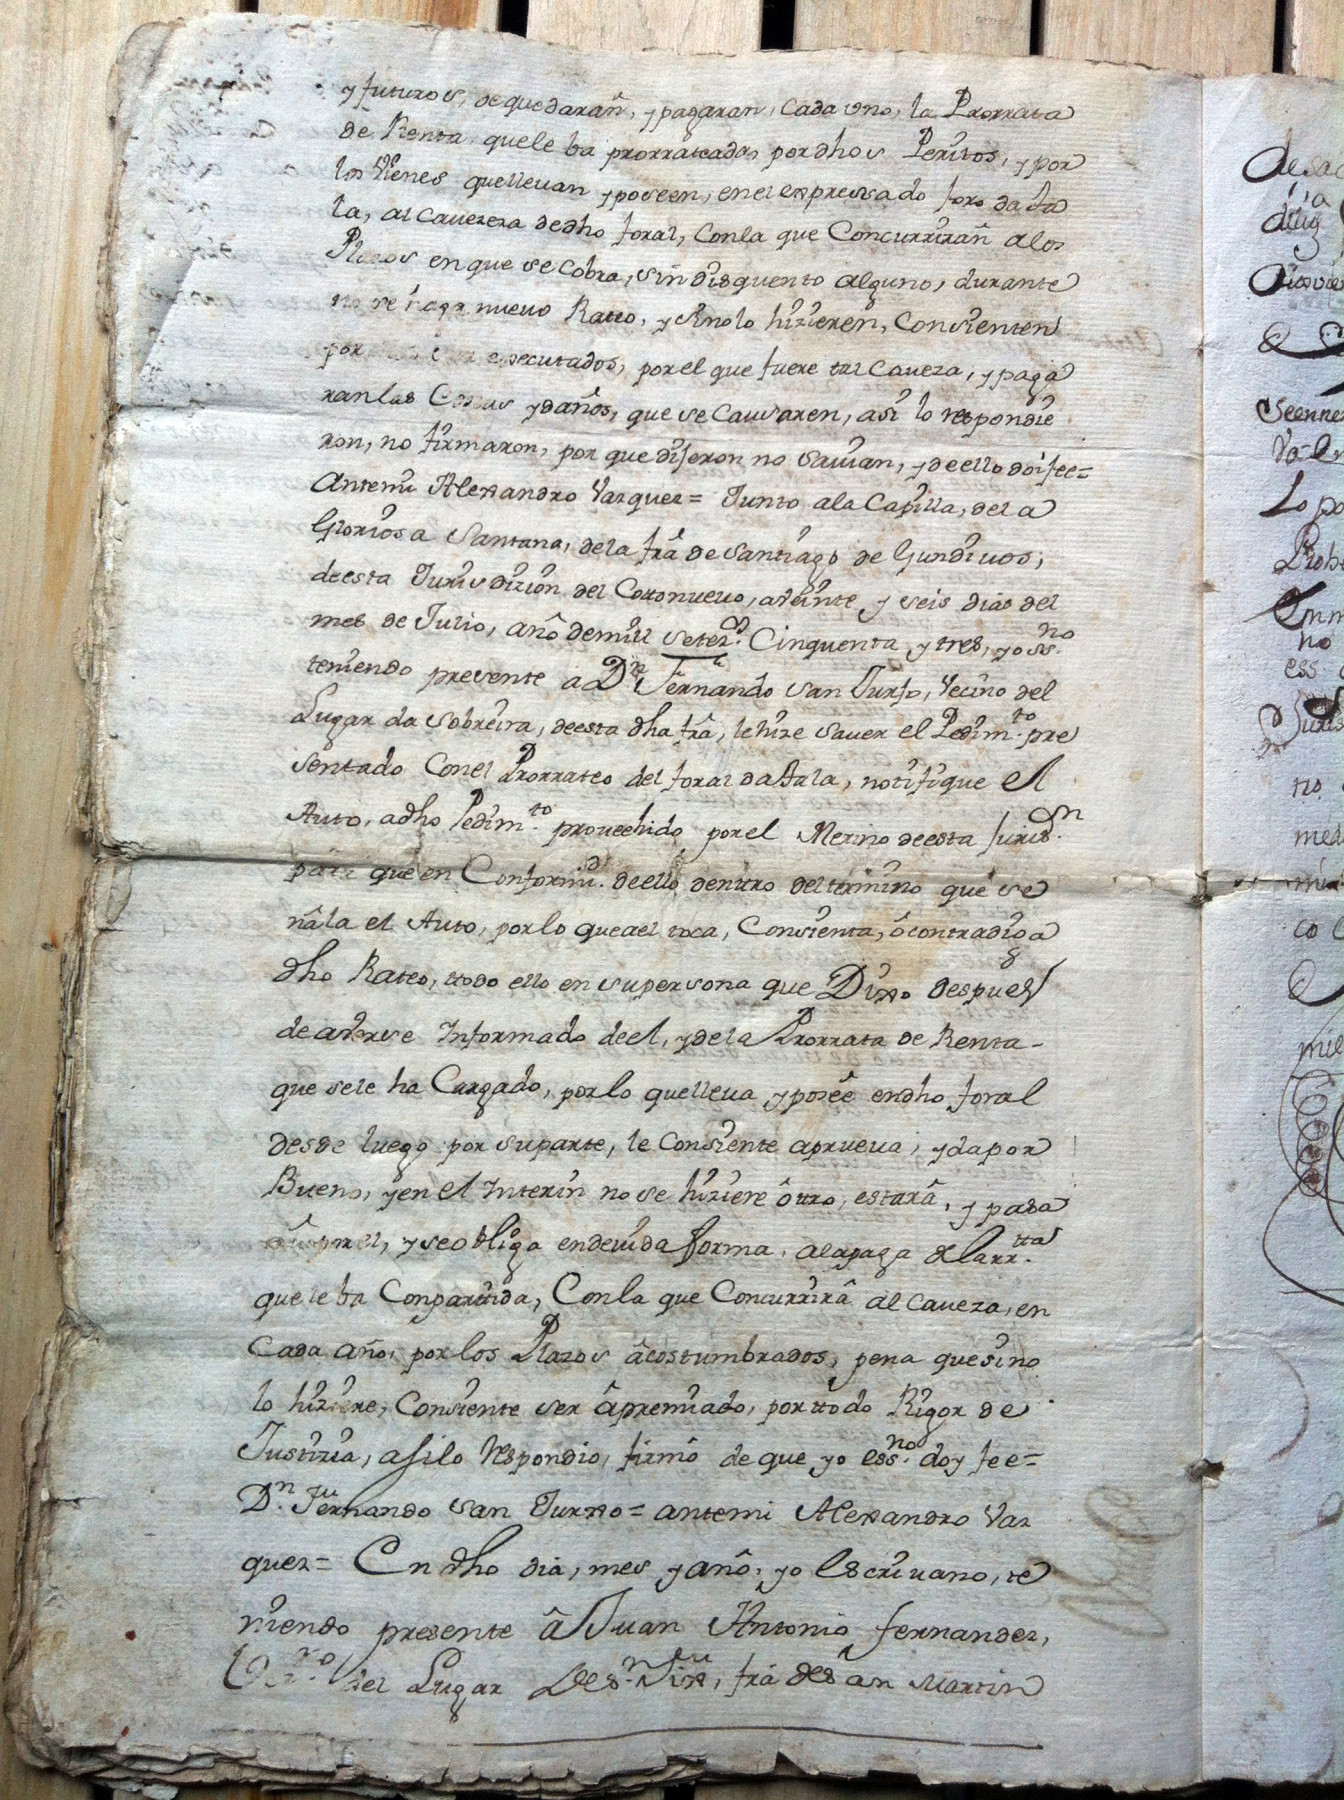 y futuros, de quedarañ, y pagaran, cada uno, la Prorrata
de Renta quele ba prorrateada, por dhos Peritos, y por
los Vienes quellevan y poseen, enel expressado foro da Ar
la, al Cauezera de dho foral, Conla que Concurrirañ alos
Plazos en que se Cobra, sin disquento alguno, durante
no se haga nuevo Rateo, y sinolo hizieren, Consienten
por executados, por el que fuere tal Caueza, y paga
ran las Costas y daños, que se Causaren, asi lo respondie
ron, no firmaron, por que dijeron no Sauian, y de ello doi fee=
Antemi Alexandro Vazquez= Junto ala Capilla, dela
Gloriosa Santana, dela frâ de Santiago de Gundiuos,
de esta Jurisdizion del Cotonuevo, a veinte y seis dias del
mes de Julio, año demill setez.os Cinquenta y tres, yo ss.no
teniendo presente a Dn Fernando San Jurjo, Vecino del
Lugar da Sobreira, deesta dha frâ, le hize sauer el Pedim.to pre
sentado Conel Prorrateo del foral da Arla, notifique el
Auto, adho Pedim.to proueehido por el Merino deesta Juris.on
para que en Conformi.d deello dentro del termino que se
ñala el Auto, por lo que ael toca, Consienta, ô contradiga
dho Rateo, ttodo ello en supersona que Dixo despues
de averse Informado deel, y dela Prorrata de Renta-
que sele ha Cargado, por lo quelleua y poseê endho foral
desde luego por suparte, le Consiente aprueua, y da por
Bueno, y en el Interin no se hiziere ôtro, estarâ, y pasa
râ por el, y se obliga endeuida forma, alapaga de la rr.tta
que le ba Conpartida, Conla que Concurrirâ al Caueza, en
Cada año, por los Plazos âcostumbrados, pena que sino
lo hiziere, Consiente ser âpremiado, por ttodo Rigor de
Justizia, asilo respondio, firmô de que yo ess.no doy fee=
D.n Fernando San Jurxo= antemi Alexandro Vaz
quez= En dho dia, mes y año, yo Escriuano, te
niendo presente â Juan Antonio fernandez,
del Lugar frâ de San Martin